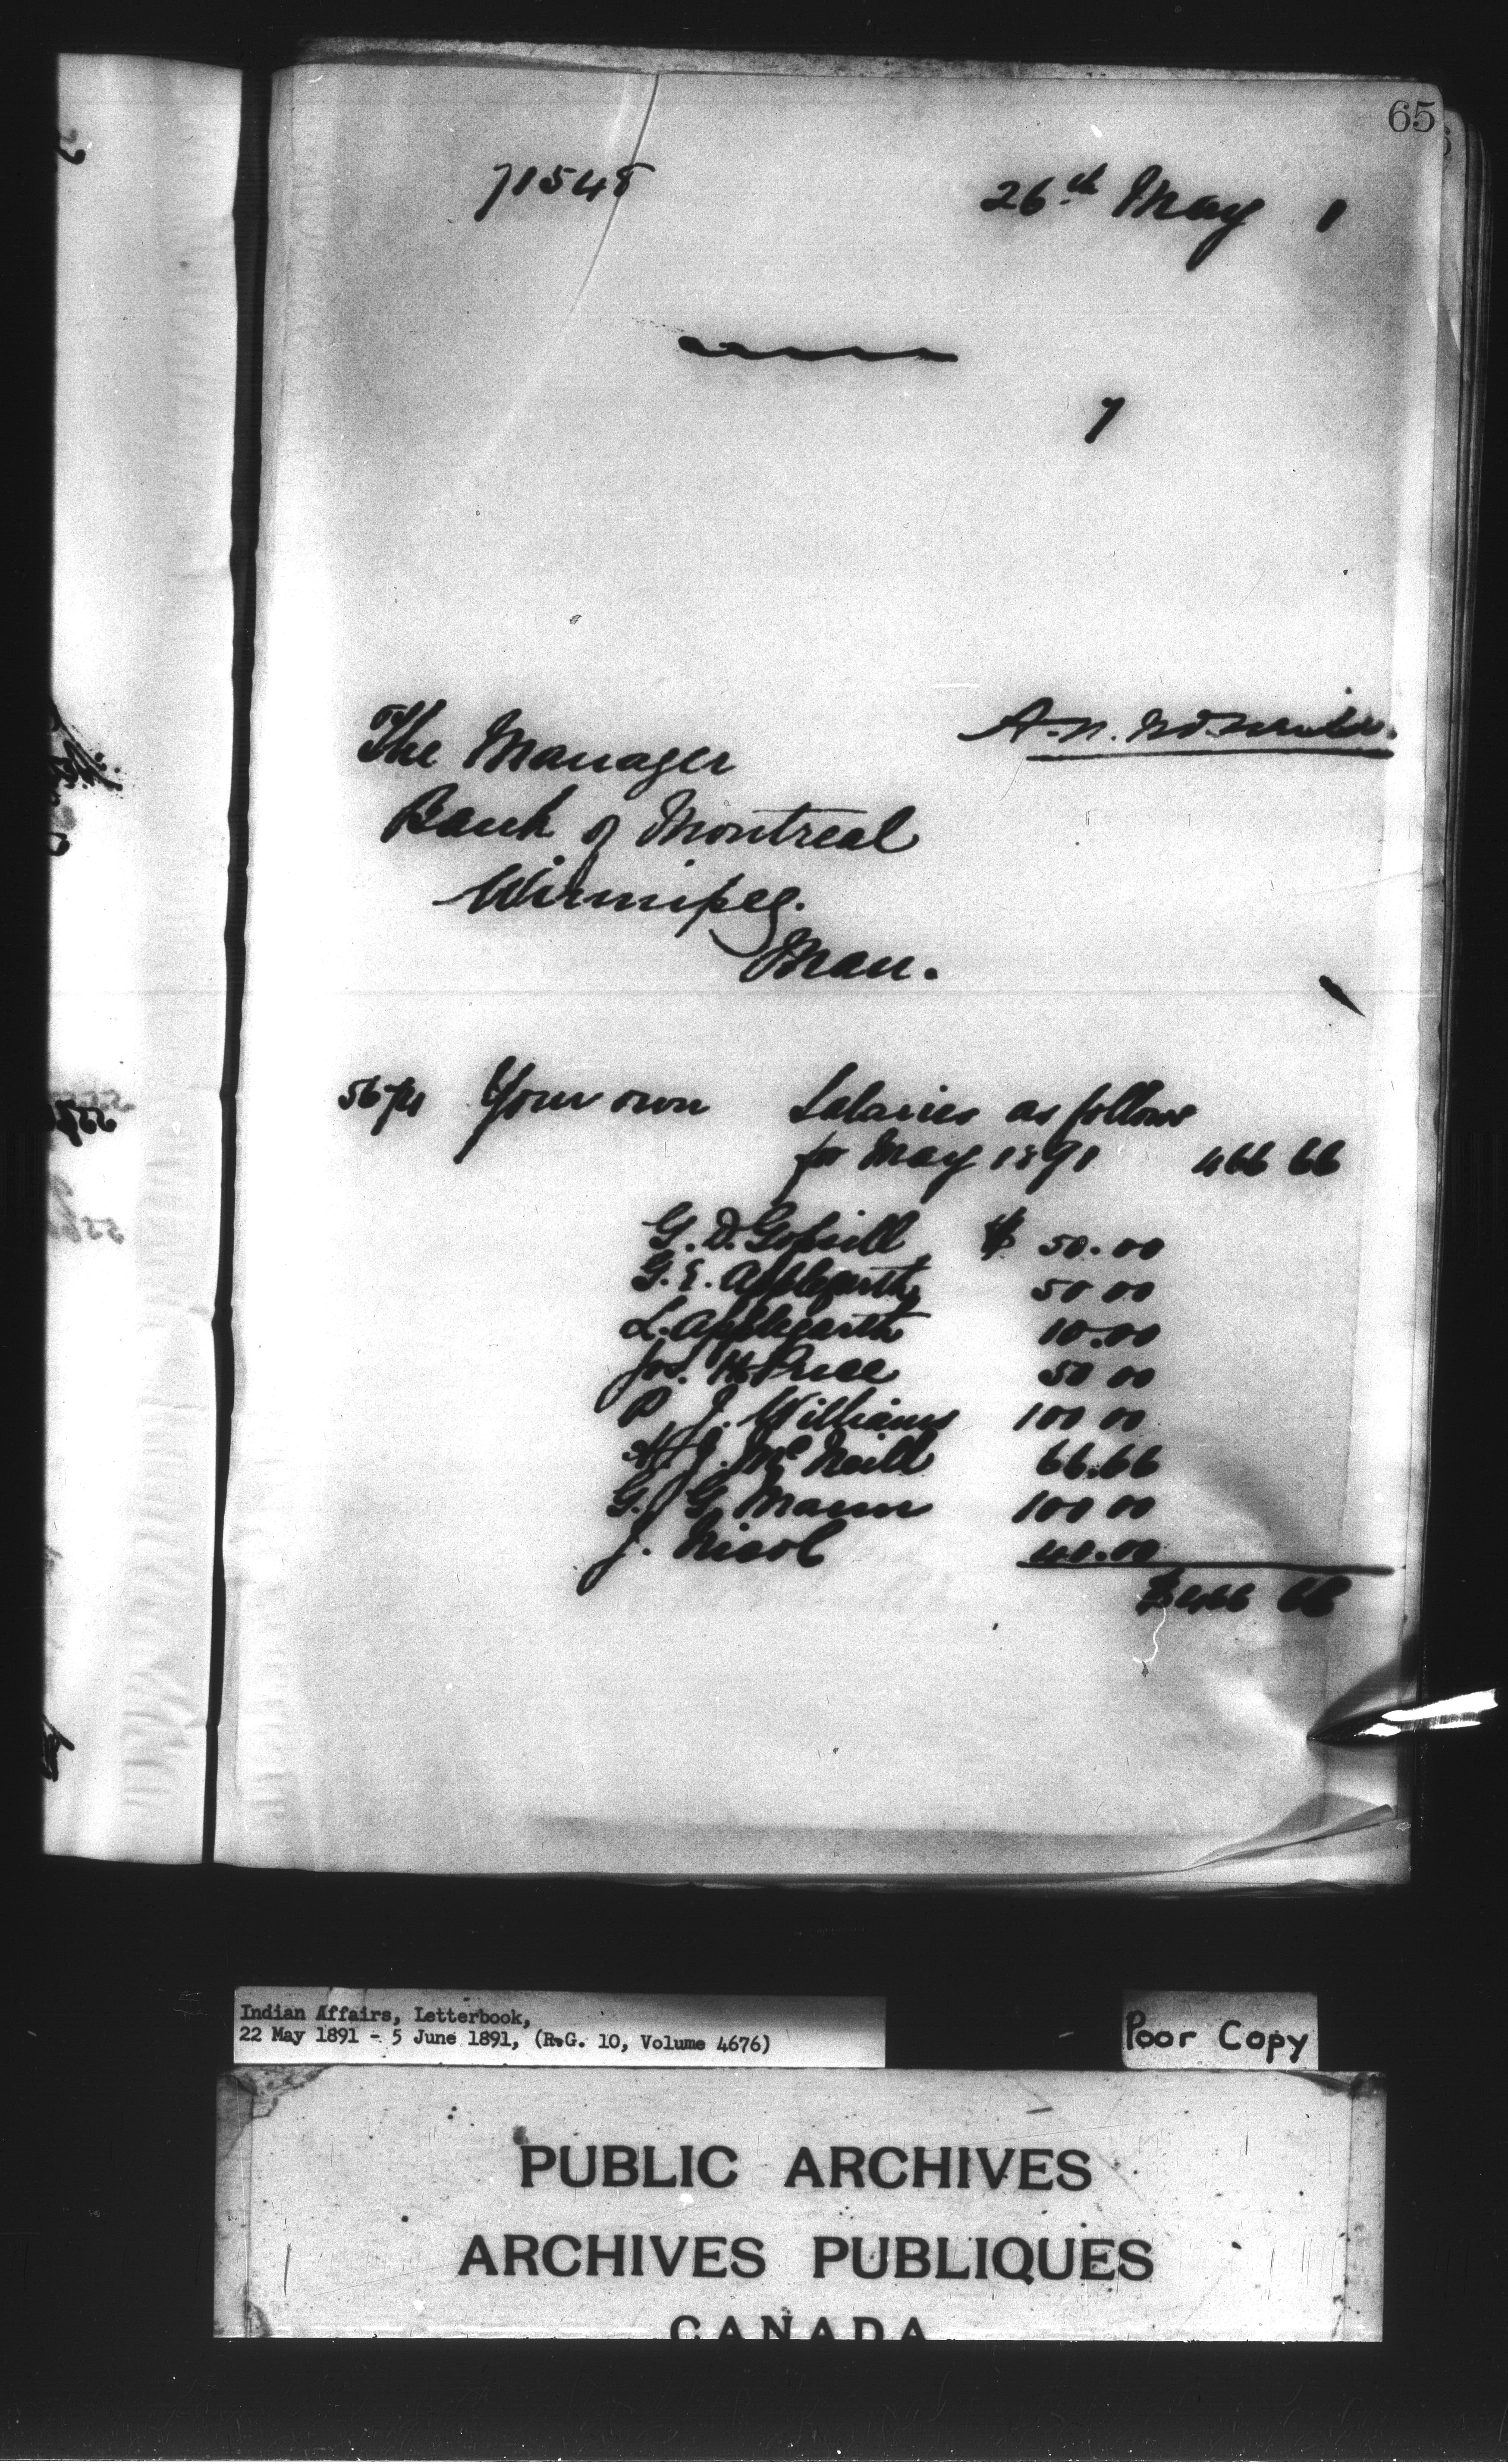 65
71548
26th May 1
7
The Manager
Bank of Montreal
Winnipeg.
Man.
Your own Salaries as follows
for May 1891 466 66
G. D. Gopsill $ 50.00
G. E. Applegarth 50 00
L. Applegarth 10.00
Jos. H. Price 50 00
P J. Williams 100 00
A J. McNeill 66.66
G. G Mann 100 00
J. Nicol 40.00
$466 66
Indian Affairs, Letterbook,
22 May 1891 - 5 June 1891, (R.G. 10, Volume 4676)
Poor Copy
PUBLIC ARCHIVES
ARCHIVES PUBLIQUES
CANADA